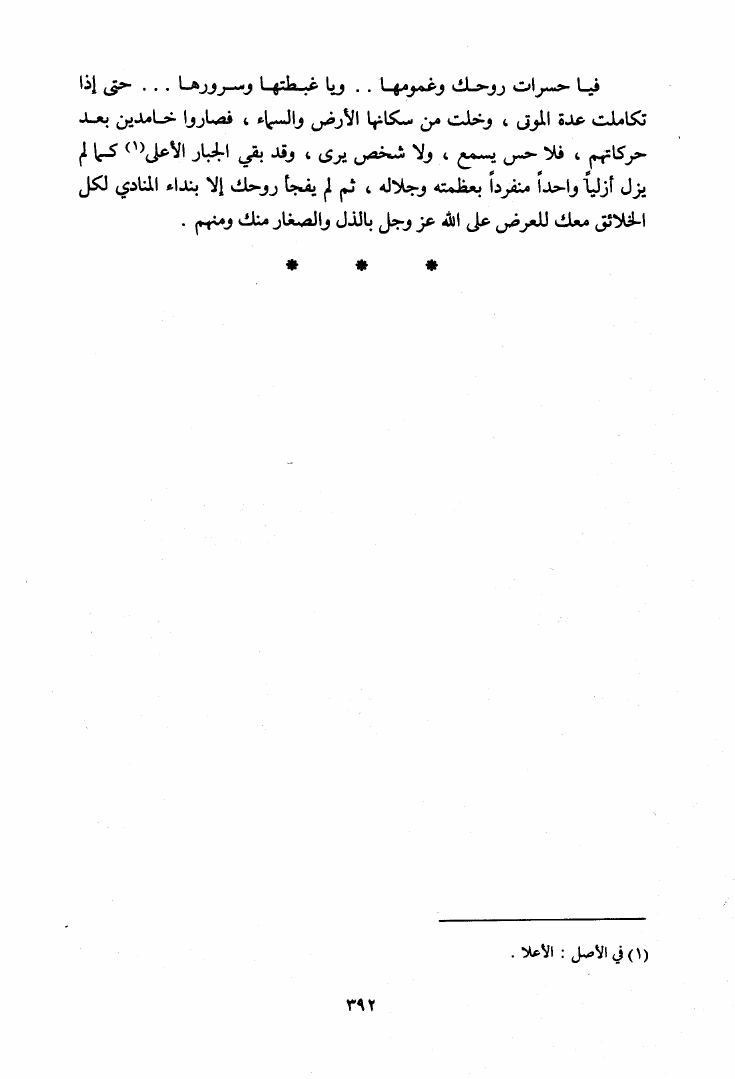 فيا حسرات روحك وغمومها . . ويا غبطتها وسرورها . . . حتى إذا
تكاملت عدة الموتى ، وخلت من سكانها الأرض والسماء ، فصاروا خامدين بعد
حركاتهم ، فلا حس يسمع ، ولا شخص يرى ، وقد بقي الجبار الأعلى(١) كما لم
يزل أزلياً واحداً منفرداً بعظمته وجلاله ، ثم لم يفجأ روحك إلا بنداء المنادي لكل
الخلائق معك للعرض على الله عز وجل بالذل والصغار منك ومنهم .
* * *
(١) في الأصل : الأعلا .
٣٩٢